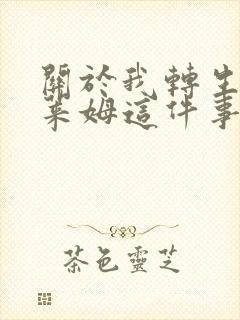 關於我轉生
萊姆這件事
茶色靈芝